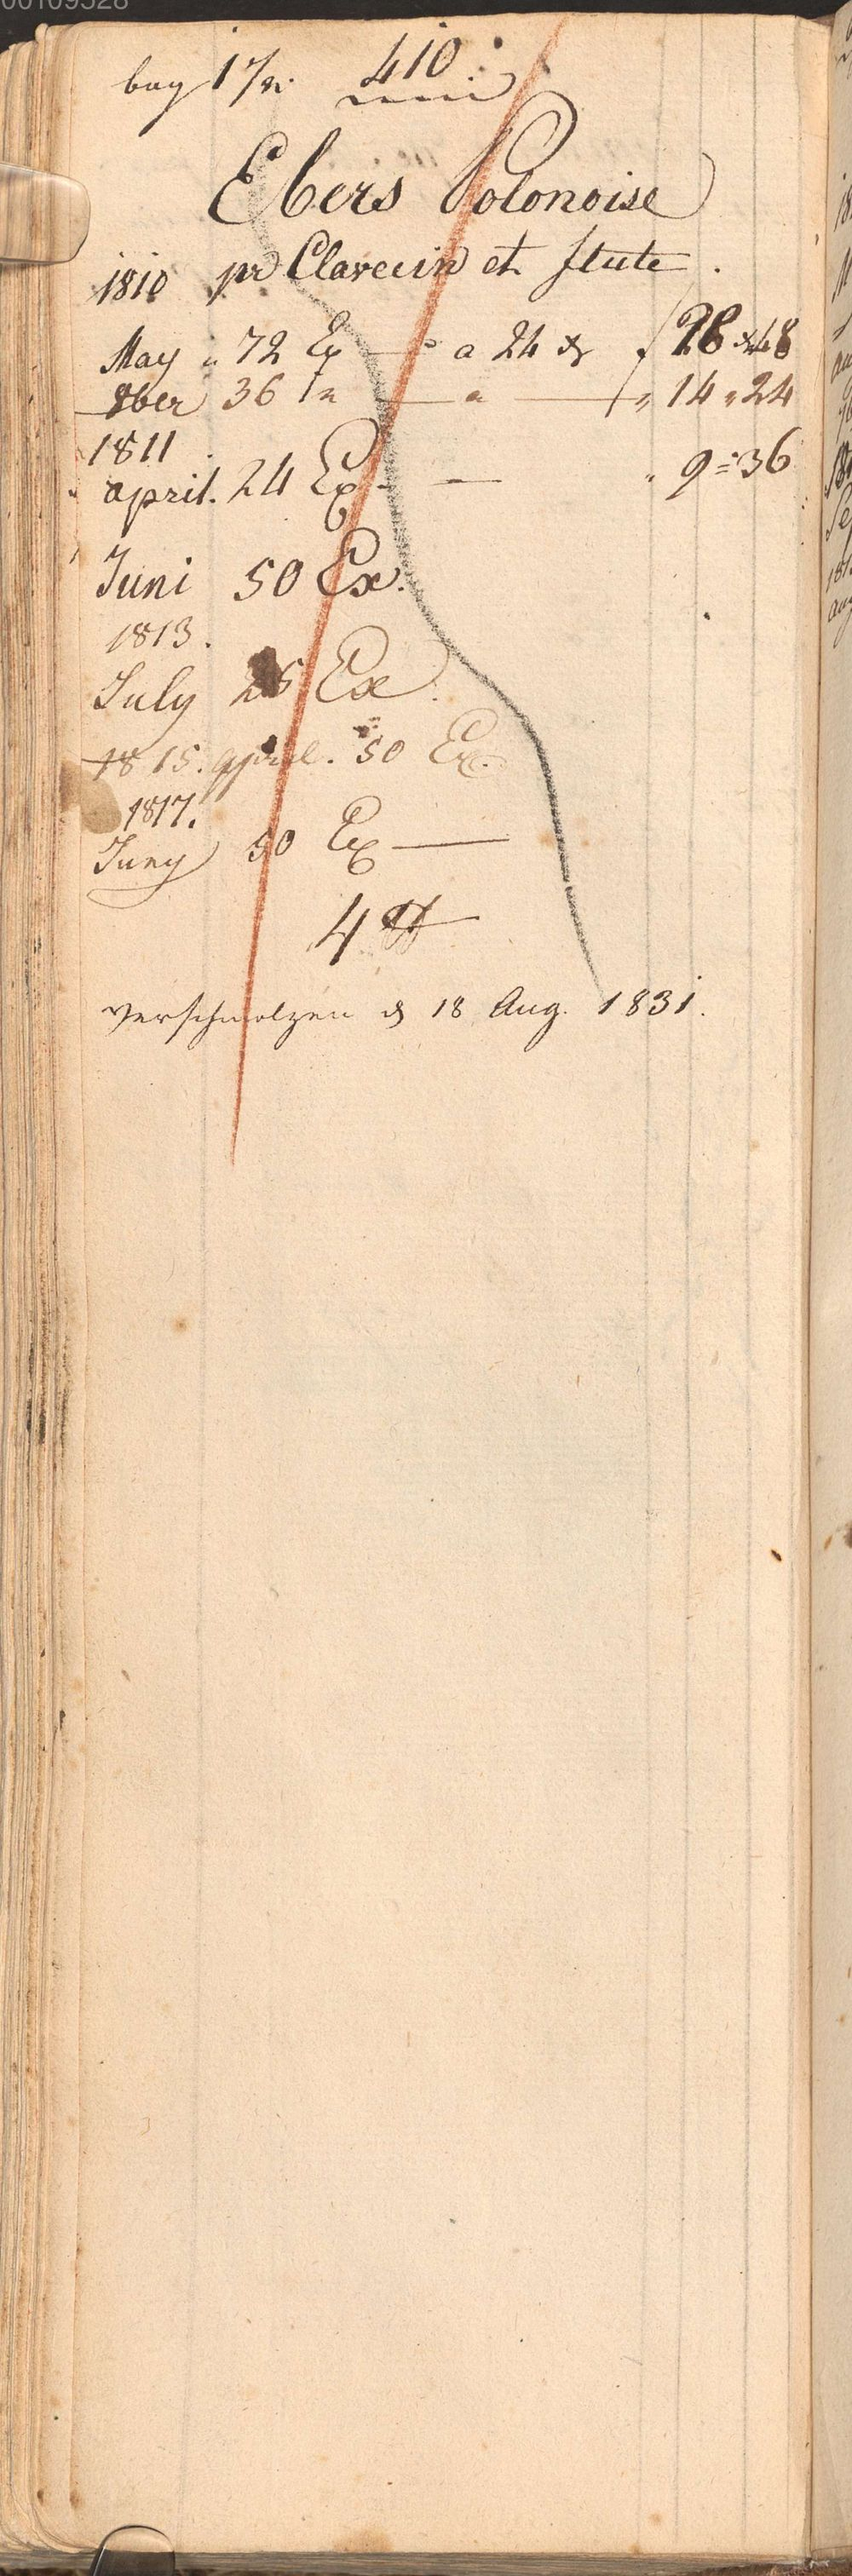 00109528
bag 17/2. 410.
Ebers Polonoise
1810 pr Clavecin et flute.
May " 72 Ex — a 24 xr f 28 x 48
8ber 36 " — " — " 14 " 24
1811
april. 24 Ex — " 9 = 36
Juni 50 Ex.
1813.
July 25 Ex.
1815. april. 50 Ex.
1817.
Juny 50 Ex —
4 ℔
verschmolzen d 18 Aug. 1831.